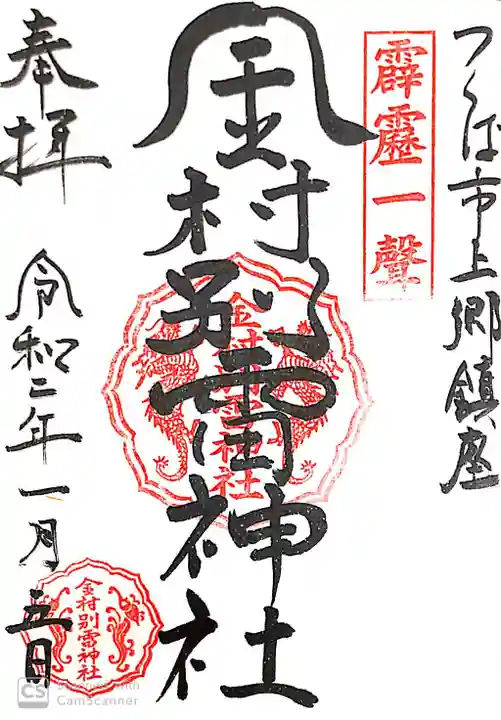 つくば市上郷鎮座
霹靂一聲
金村別雷神社
金村別雷神社
奉拝
令和二年一月五日
金村別雷神社
CS
CamScanner